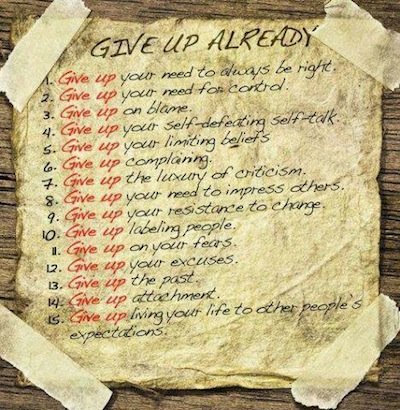 GIVE UP ALREADY
1. Give up your need to always be right.
2. Give up your need for control.
3. Give up on blame.
4. Give up your self-defeating self-talk.
5. Give up your limiting beliefs
6. Give up complaining.
7. Give up the luxury of criticism.
8. Give up your need to impress others.
9. Give up your resistance to change.
10. Give up labeling people.
11. Give up on your fears.
12. Give up your excuses.
13. Give up the past.
14. Give up attachment.
15. Give up living your life to other people's
expectations.